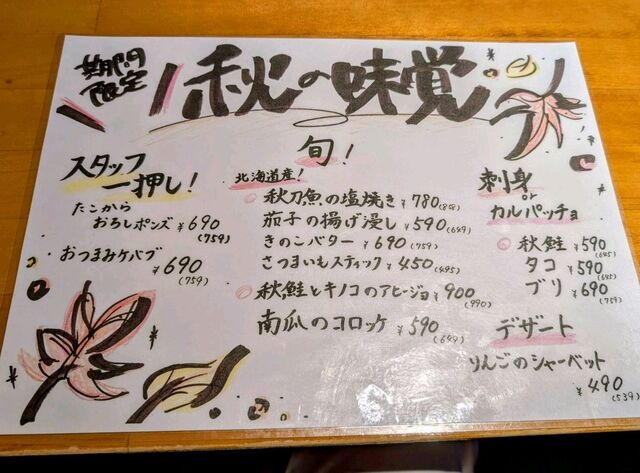 期間
限定
秋の味覚
スタッフ
一押し！
たこから
おろしポンズ ¥690
(759)
おつまみケバブ
¥690
(759)
旬！
北海道産！
秋刀魚の塩焼き ¥780(858)
茄子の揚げ浸し ¥590(649)
きのこバター ¥690(759)
さつまいもスティック ¥450(495)
秋鮭とキノコのアヒージョ ¥900
(990)
南瓜のコロッケ ¥590
(649)
刺身
or
カルパッチョ
秋鮭 ¥590
(645)
タコ ¥590
(645)
ブリ ¥690
(759)
デザート
りんごのシャーベット
¥490
(539)